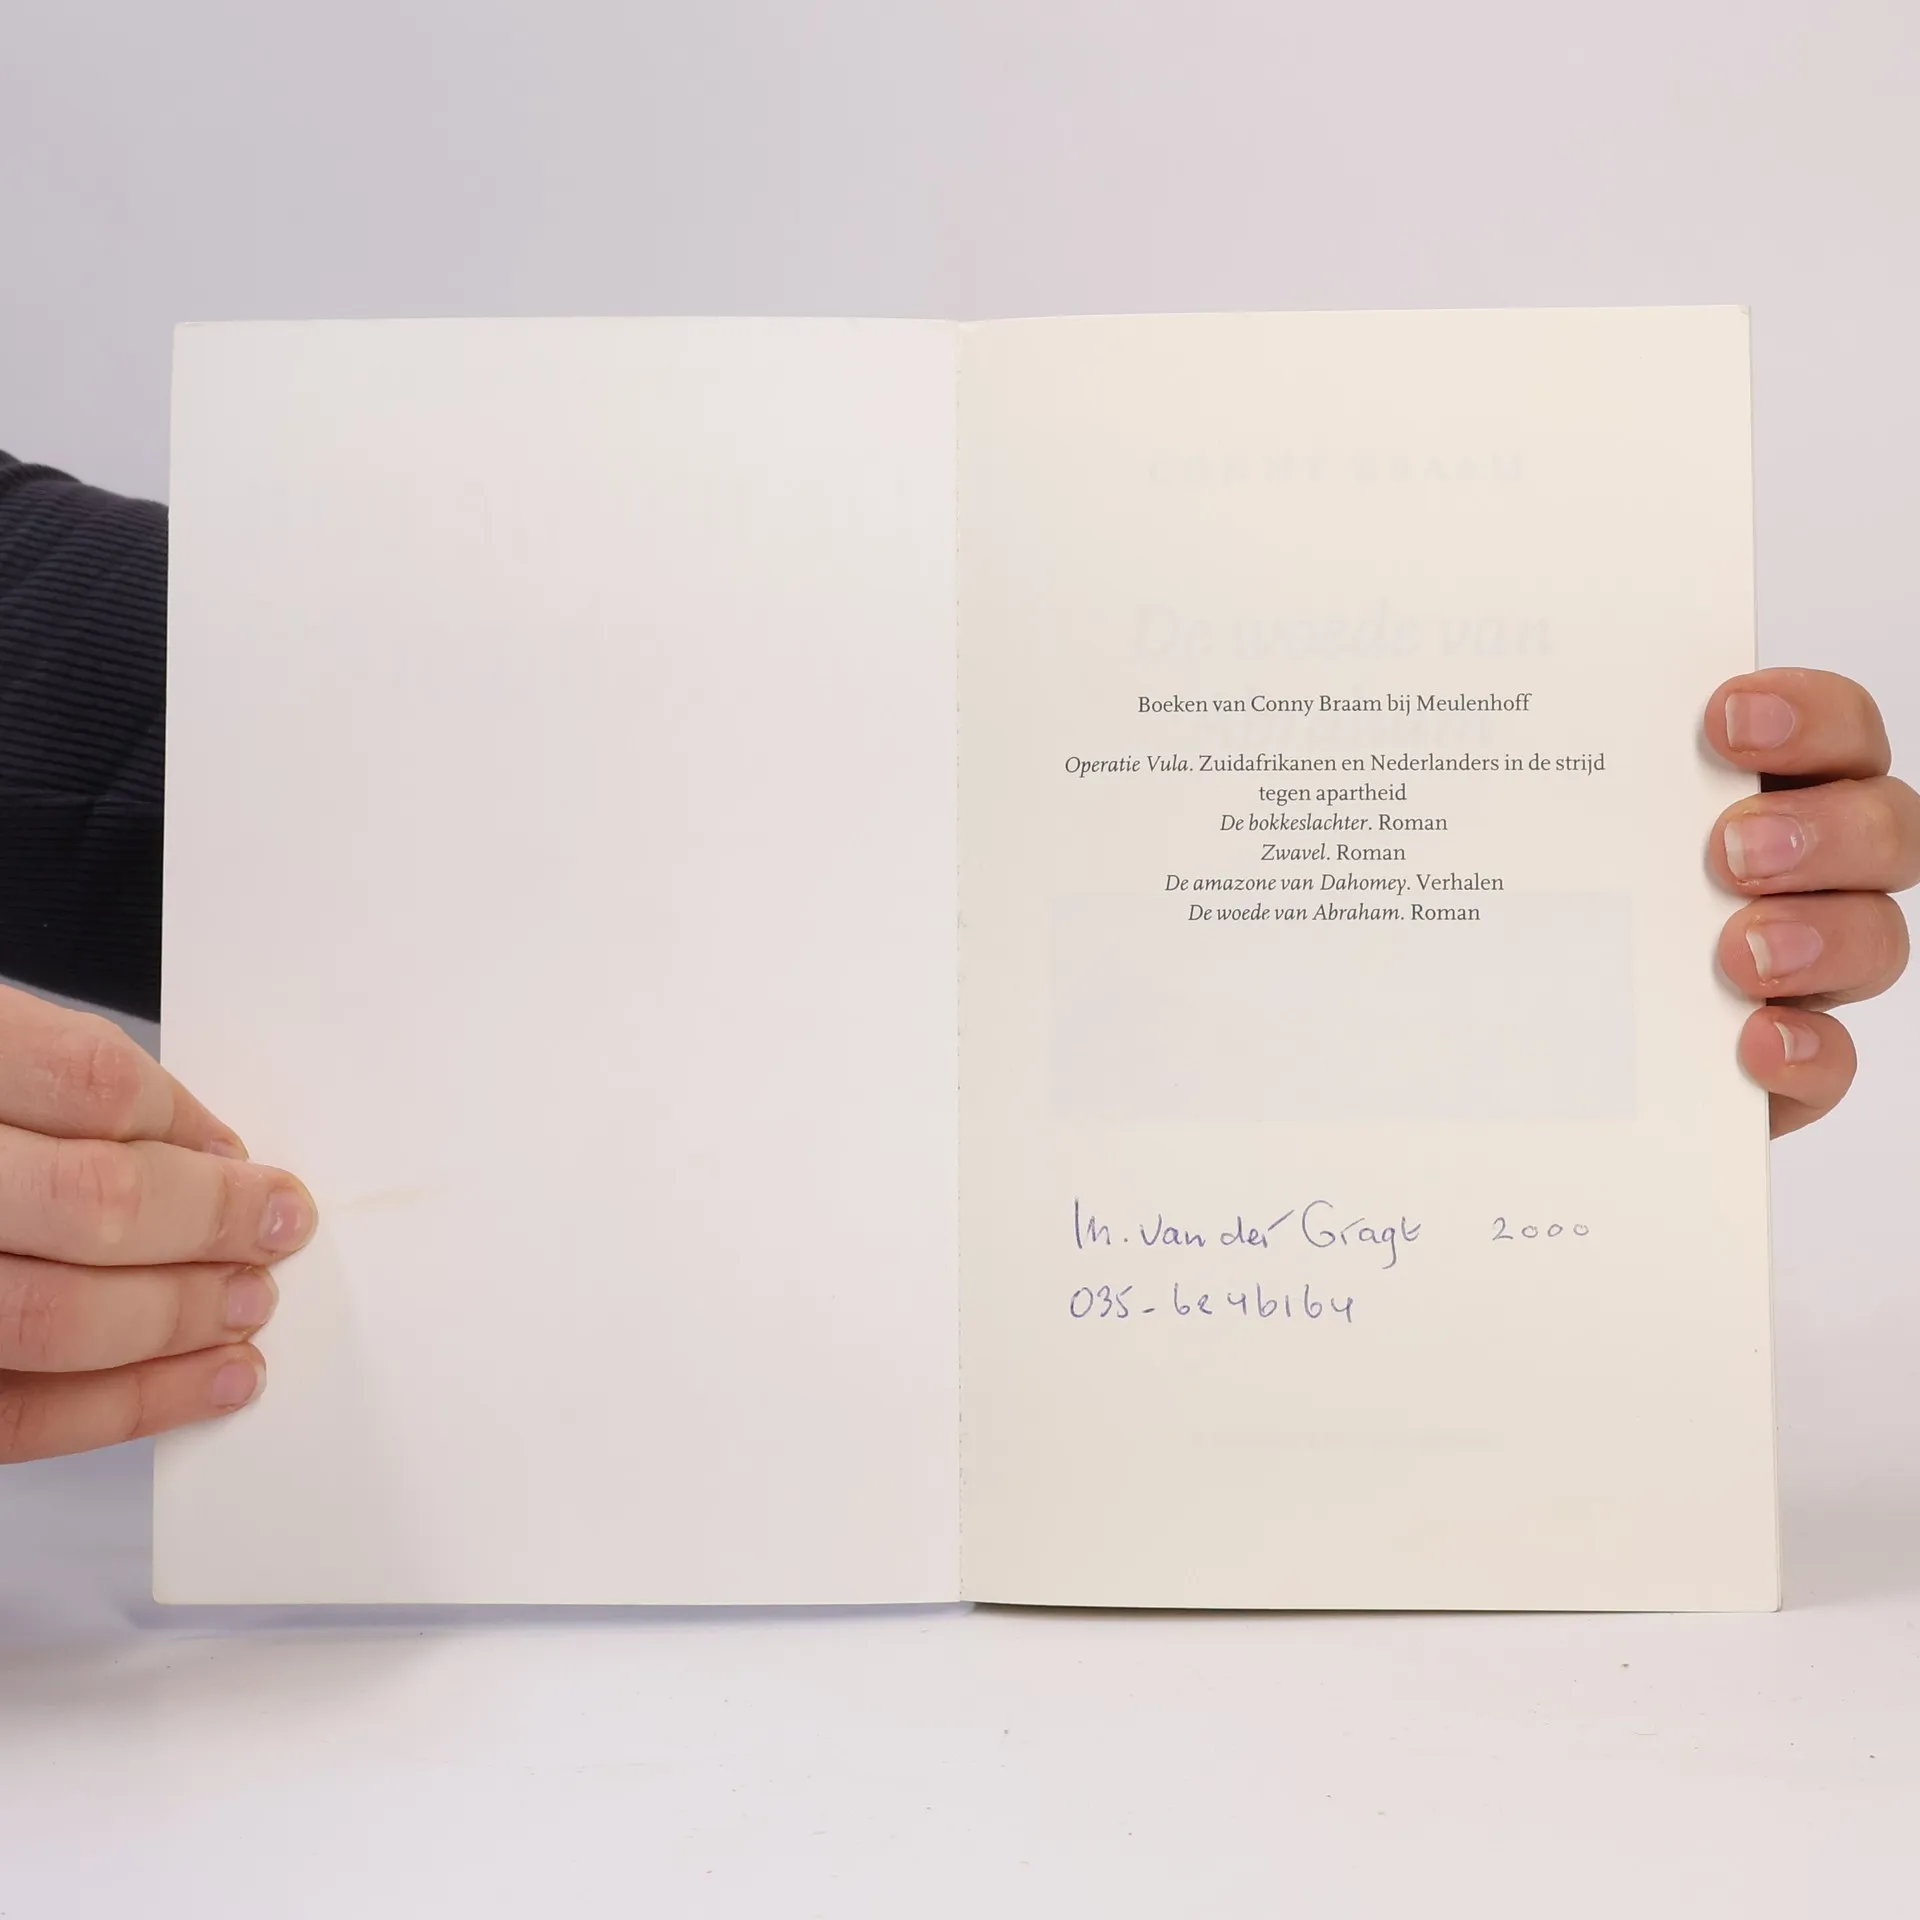 Boeken van Conny Braam bij Meulenhoff
Operatie Vula. Zuidafrikanen en Nederlanders in de strijd
tegen apartheid
De bokkeslachter. Roman
Zwavel. Roman
De amazone van Dahomey. Verhalen
De woede van Abraham. Roman
M. van der Gragt 2000
035-6246164